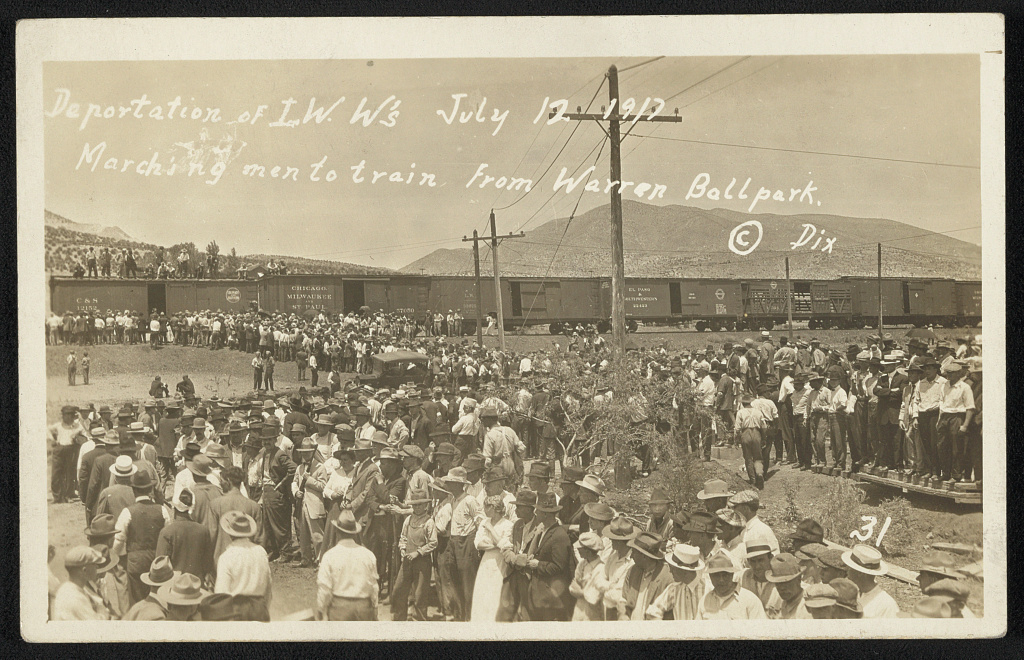 Deportation of I.W.W's July 12 1917
Marching men to train From Warren Ballpark.
© Dix
C & S
CHICAGO
MILWAUKEE
&
ST PAUL
EL PASO
&
31